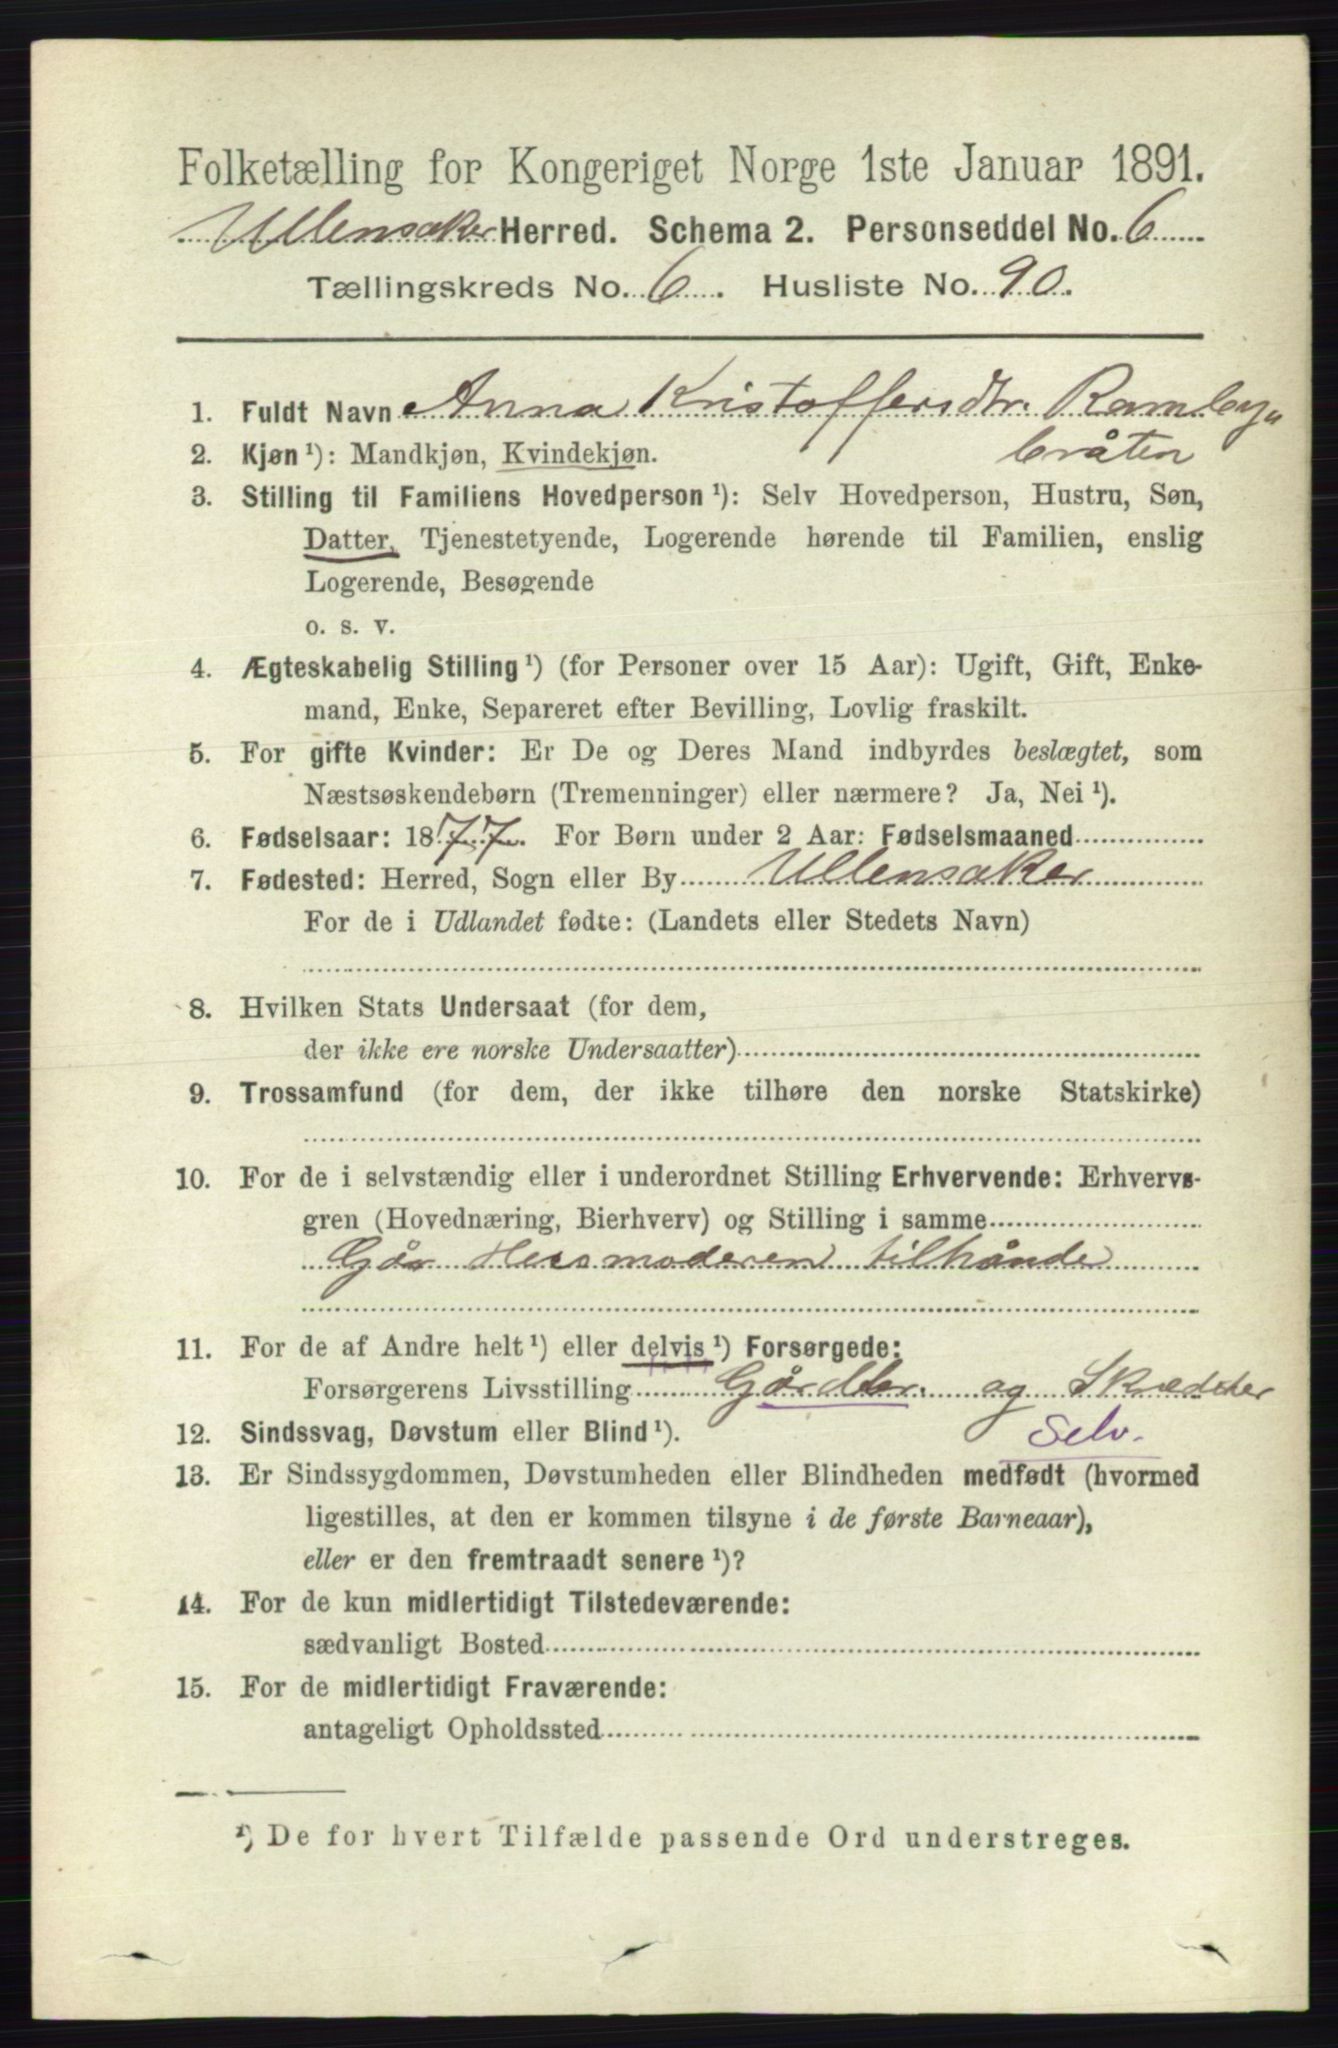 Folketælling for Kongeriget Norge 1ste Januar 1891.
Ullensaker Herred. Schema 2. Personseddel No. 6
Tællingskreds No. 6. Husliste No. 90.
1. Fuldt Navn Anna Kristoffersdtr.
2. Kjøn ¹): Mandkjøn, Kvindekjøn. bråten
3. Stilling til Familiens Hovedperson ¹): Selv Hovedperson, Hustru, Søn,
Datter, Tjenestetyende, Logerende hørende til Familien, enslig
Logerende, Besøgende
o. s. v.
4. Ægteskabelig Stilling ¹) (for Personer over 15 Aar): Ugift, Gift, Enke-
mand, Enke, Separeret efter Bevilling, Lovlig fraskilt.
5. For gifte Kvinder: Er De og Deres Mand indbyrdes beslægtet, som
Næstsøskendebørn (Tremenninger) eller nærmere? Ja, Nei ¹).
6. Fødselsaar: 1877. For Børn under 2 Aar: Fødselsmaaned
7. Fødested: Herred, Sogn eller By Ullensaker
For de i Udlandet fødte: (Landets eller Stedets Navn)
8. Hvilken Stats Undersaat (for dem,
der ikke ere norske Undersaatter)
9. Trossamfund (for dem, der ikke tilhøre den norske Statskirke)
10. For de i selvstændig eller i underordnet Stilling Erhvervende: Erhvervs-
gren (Hovednæring, Bierhverv) og Stilling i samme
Går Husmoderen tilhånde
11. For de af Andre helt ¹) eller delvis ¹) Forsørgede:
Forsørgerens Livsstilling Gårdbr. og Skrædder
12. Sindssvag, Døvstum eller Blind ¹). Selv.
13. Er Sindssygdommen, Døvstumheden eller Blindheden medfødt (hvormed
ligestilles, at den er kommen tilsyne i de første Barneaar),
eller er den fremtraadt senere ¹)?
14. For de kun midlertidigt Tilstedeværende:
sædvanligt Bosted
15. For de midlertidigt Fraværende:
antageligt Opholdssted
¹) De for hvert Tilfælde passende Ord understreges.